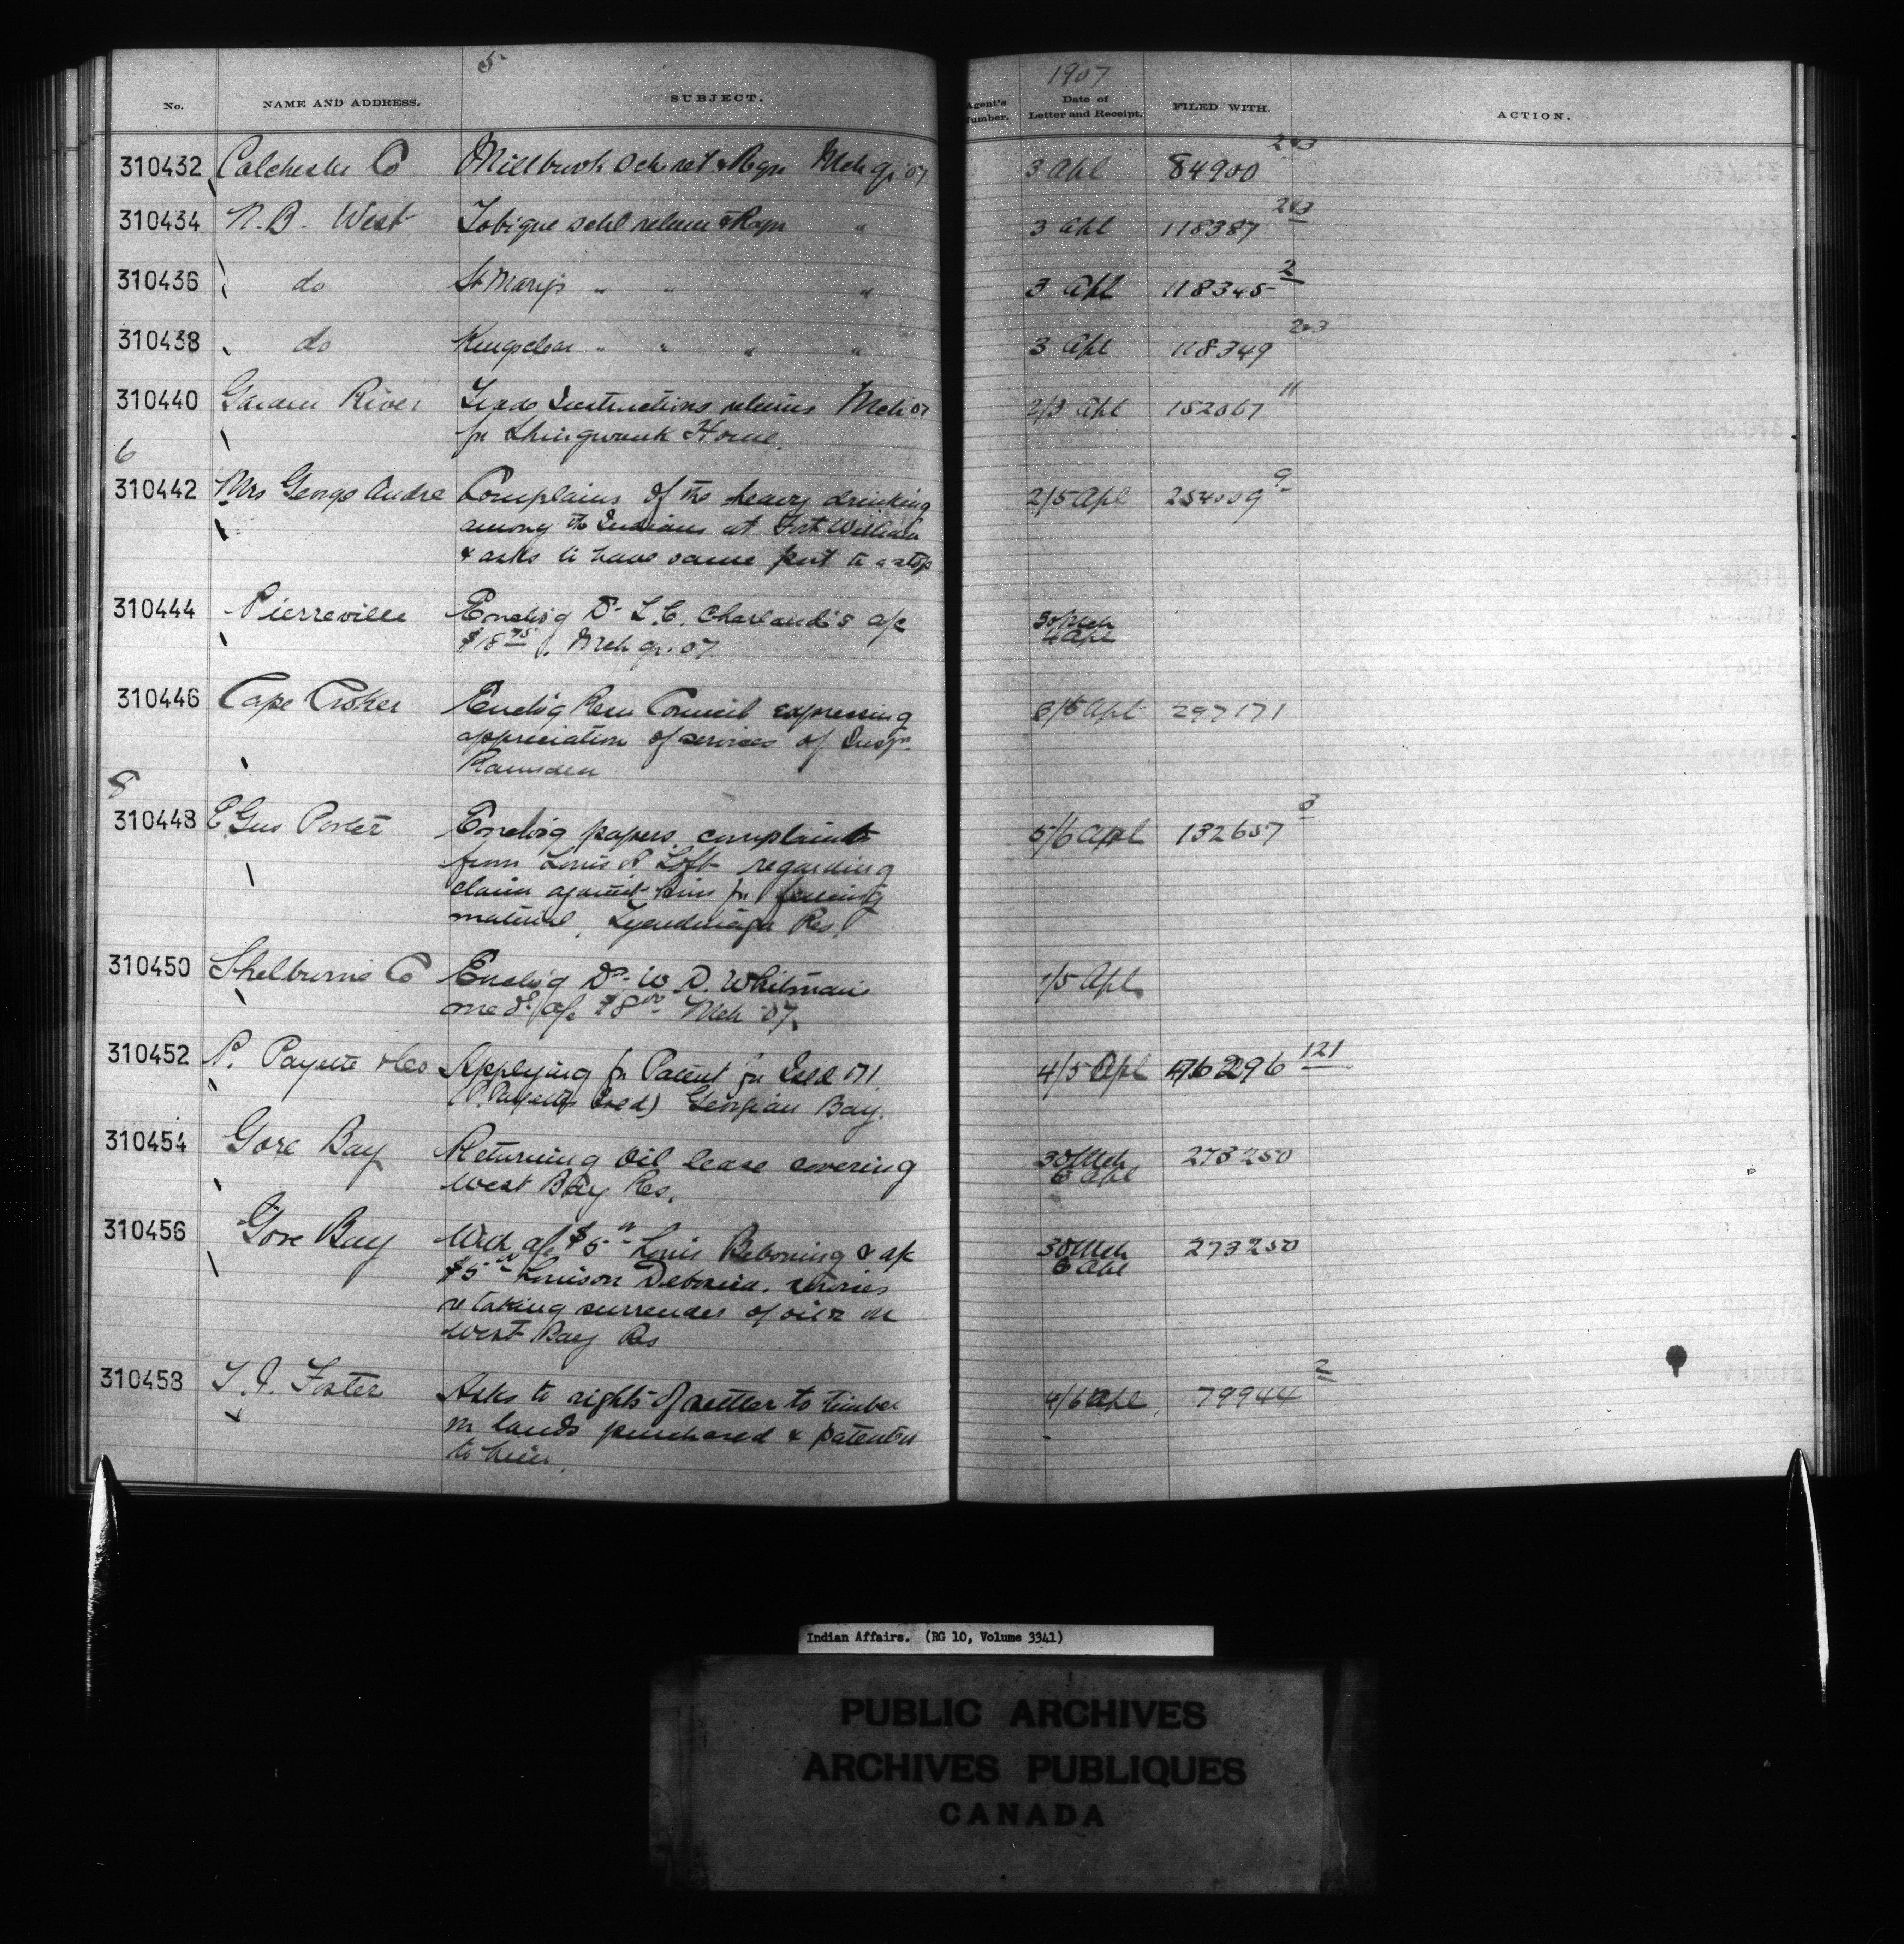 5
1907
No. NAME AND ADDRESS. SUBJECT. Agent's Number. Date of Letter and Receipt. FILED WITH. ACTION.
310432 Colchester Co Millbrook Sch ret & Reqn Mch qr '07 3 Apl 84900 2&3
310434 N.B. West Tobique schl return & Reqn " 3 Apl 118387 2&3
310436 do St Marys " " " 3 Apl 118345 2
310438 do Kingsclear " " " " 3 Apl 118349 2&3
310440 Garden River Trade Instructions returns Mch 07 2/3 Apl 152067 11
for Shingwauk Home.
6
310442 Mrs George Andre Complains of the heavy drinking 2/5 Apl 254009 9
among the Indians at Fort William
& asks to have same put to a stop
310444 Pierreville Enclos'g Dr L.C. Charland's a/c 30 Mch
$18 75. Mch qr. 07. 4 Apl
310446 Cape Croker Enclos'g Resn Council expressing 3/5 Apl 297171
appreciation of services of Inspr
Ramsden
8
310448 E Gus Porter Enclos'g papers, complaint 5/6 Apl 132657 3
from Louis A Loft regarding
claim against him for fencing
material, Tyendinaga Res.
310450 Shelburne Co Enclos'g Dr W.D. Whitman's 1/5 Apl
med a/c $8 00 Mch 07.
310452 P. Payette & Co Applying for Patent for Isld 171 4/5 Apl 176296 121
(P. Payette Isld) Georgian Bay.
310454 Gore Bay Returning Oil lease covering 30 Mch 273250
West Bay Res. 6 Apl
310456 Gore Bay With a/c $5 00 Louis & a/c 30 Mch 273250
$5 00 Louison 6 Apl
re taking surrender of oil on
West Bay Res
310458 T.J. Foster Asks to rights of settler to timber 4/6 Apl 79944 2
on lands purchased & patented
to him.
Indian Affairs. (RG 10, Volume 3341)
PUBLIC ARCHIVES
ARCHIVES PUBLIQUES
CANADA